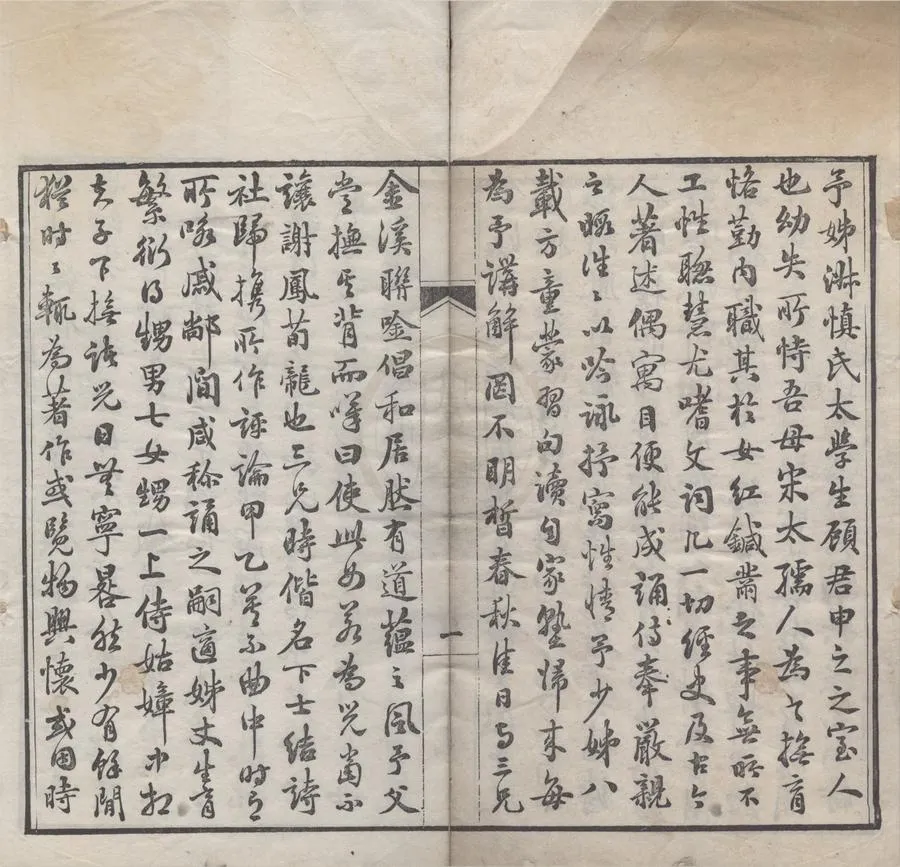 予姊淋慎氏太學生顧君申之之室人
也幼失所恃吾母宋太孺人為之撫育
恪勤內職其於女紅鍼黹之事無所不
工性聰慧尤嗜文詞凡一切經史及古今
人著述偶寓目便能成誦侍奉嚴親
之暇往往以吟詠抒寫性情予少姊八
載方童蒙習句讀自家塾歸來每
為予講解罔不明晳春秋佳日與三兄
一
金溪聯唫倡和居然有道蘊之風予父
嘗撫其背而嘆曰使此女若為兒當不
讓謝鳳荀龍也三兄時偕名下士結詩
社歸携所作評論甲乙莫不曲中時之
所咏戚鄰間咸称誦之嗣適姊丈生育
繁衍得甥男七女甥一上侍姑嫜中相
夫子下撫諸兒日無寧晷然少有餘閒
猶時時輒為著作或覽物興懷或因時